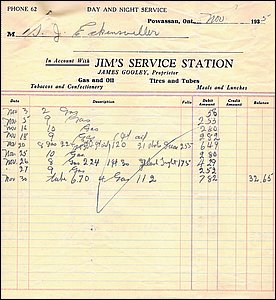 PHONE 62 DAY AND NIGHT SERVICE
Powassan, Ont., Nov 193
M
In Account With JIM'S SERVICE STATION
JAMES GOOLEY, Proprietor
Gas and Oil Tires and Tubes
Tobaccos and Confectionery Meals and Lunches
Date Folio Debit Amount Credit Amount Balance
Nov 3 2 Gas 58
Nov 5 9 Gas 255
Nov 16 10 Gas 280
Nov 18 9 Gas
Nov 20 8 Gas 649
Nov 25 10 Gas 280
Nov 26 8 Gas 224 429
" 27 9 Gas 252
Nov 30 tube 6.70 4 Gas 112 782 32.65